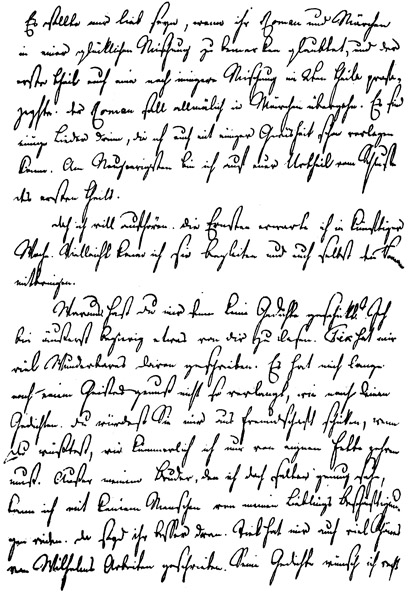 Es sollte mir lieb seyn, wenn ihr Roman und Märchen
in einer glücklichen Mischung zu bemerken glaubtet, und der
erste Theil euch eine noch innigere Mischung im 2ten Theile profe-
zeyhte. Der Roman soll allmälich in Märchen übergehn. Es sind
einige Lieder drinn, die ich euch mit einiger Gewisheit schon vorlegen
kann. Am Neugierigsten bin ich auf euer Urtheil vom Schluß
des ersten Theils.
doch ich will aufhören. Die Ernsten erwarte ich in künftiger
Woche. Vielleicht kann ich sie begleiten und euch selbst den Roman
mitbringen.
Warum hast du mir denn keine Gedichte geschickt? Ich
bin äußerst begierig etwas von dir zu lesen. Tiek hat mir
viel Wunderbares davon geschrieben. Es hat mich lange
nach einem Geistesgenuß nicht so verlangt, wie nach deinen
Gedichten. Du würdest Sie mir aus Freundschaft schicken, wenn
du wüßtest, wie kümmerlich ich nur von eignem Fette zehren
muß. Außer meinem Bruder, den ich doch selten genug sehe,
kann ich mit keinem Menschen von meinen Lieblings Beschäftigun-
gen reden. Da seyd ihr besser dran. Tiek hat mir auch viel schönes
von Wilhelms Arbeiten geschrieben. Seine Gedichte wünsch ich recht